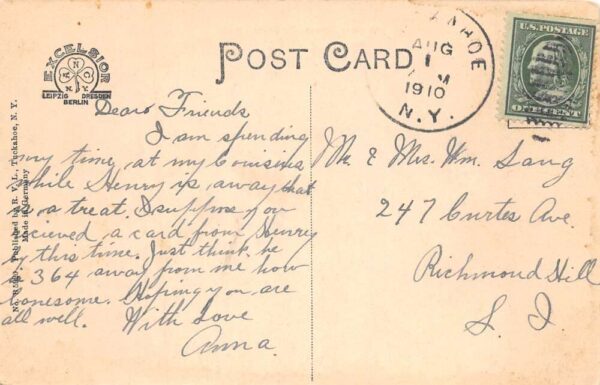 EXCELSIOR
A N G
N.Y.
LEIPZIG DRESDEN
BERLIN
POST CARD
AHOE
AUG
1
M
1910
N.Y.
U.S. POSTAGE
ONE CENT
No. Published by R. V. L., Tuckahoe, N. Y.
Made in Germany
Dear Friends
I am spending
my time at my Cousins
while Henry is away that
is a treat. I suppose you
recieved a card from Henry
by this time. Just think he
is 364 away from me how
lonesome. Hoping you are
all well. With Love
Anna
Mr. & Mrs. Wm. Sang
247 Curtes Ave.
Richmond Hill
L. I